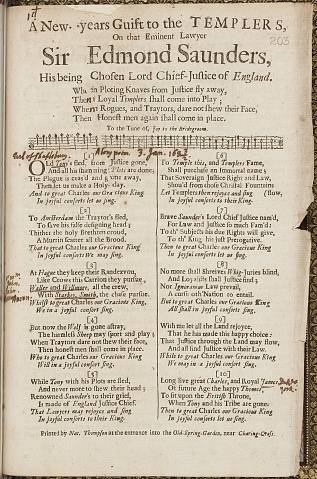 A New-years Guift to the TEMPLERS,
On that Eminent Lawyer
Sir Edmond Saunders,
His being Chosen Lord Chief-Justice of England.
203
When Ploting Knaves from Justice fly away,
Then Loyal Templers shall come into Play;
When Rogues, and Traytors, dare not shew their Face,
Then Honest men again shall come in place.
To the Tune of, Joy to the Bridegroom.
[1]
Old Tony's fled, from Justice gone,
And all his shamming Plots are done;
The Plague is ceas'd and gone away,
Then let us make a Holy-day.
And to great Charles our Gracious King
In Joyful consorts let's sing.
[2]
To Amsterdam the Traytor's fled,
To save his false designing head;
Thither the holy Brethren croud,
A Murrin scatter all the Brood.
That to great Charles our Gracious King
In Joyful consorts We may sing.
[3]
At Hague they keep their Randezvou,
Like Crows this Carrion they pursue,
Waller and Widhams, all the crew,
With Starkey, Smith, the chase pursue.
Whilst to great Charles our Gracious King,
We in a joyful consort sing.
[4]
But now the Wolf is gone astray,
The humble Sheep may sport and play;
When Traytors dare not shew their foot,
Then honest men shall come in place.
Who to great Charles our Gracious King
Will in a joyful consort sing.
[5]
While Tony with his Plots are fled,
And never more to shew their head;
Renowned Saunders to their grief,
Is made of England Justice Chief.
That Lawyers may rejoyce and sing
In joyful consorts to their King.
[6]
To Temple this, and Templers Fame,
Shall purchase an Immortal name;
That Soveraign Justice Right and Law,
Shou'd from those Christal Fountains flow,
Let Templers then rejoyce and sing
In joyful consorts to their King.
[7]
Brave Saunders Lord Chief Justice nam'd,
For Law and Justice so much Fam'd:
To th' Subjects his due Rights will give,
To th' King his just Prerogative.
Then to great Charles our Gracious King
In joyful consorts let us sing.
[8]
No more shall shreives Whig-Juries blind,
And Loyalists shall Justice find;
Nor Ignoramus Law prevail,
A curse oth'Nation to entail.
But to great Charles our Gracious King
All shall in joyful consorts sing.
[9]
With me let all the Land rejoyce,
That he has made this happy choice:
That Justice through the Land may flow,
And all find Justice with their Law.
Whilst to great Charles our Gracious King
We may in a joyful consort sing.
[10]
Long live great Charles, and Royal James
Of future Age the happy Themes
To sit upon the British Throne,
When Tony and his Tribe are gone.
Then to great Charles our Gracious King
In joyful consorts let us sing.
Printed by Nat. Thompson at the entrance into the Old-Spring-Garden, near Charing-Cross.